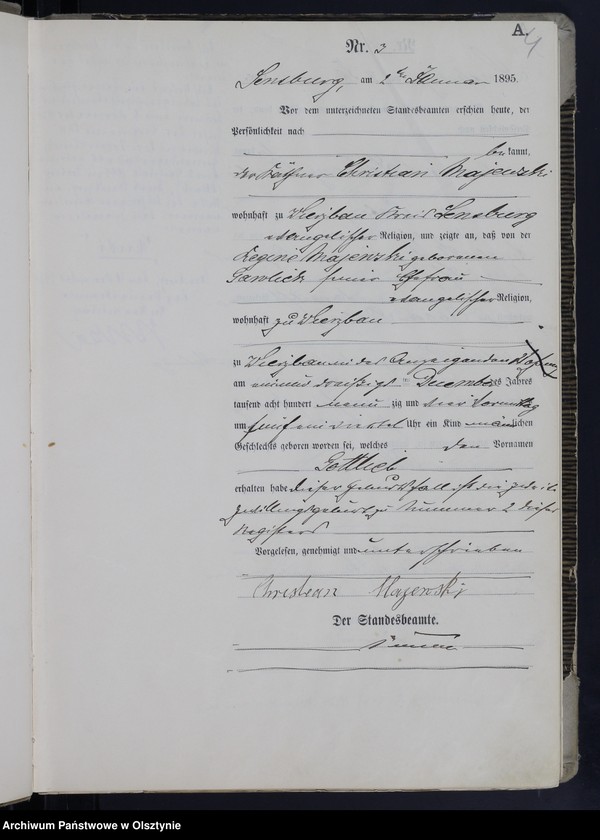 A.
4
Nr. 3
Sensburg, am 2ten Januar 1895.
Vor dem unterzeichneten Standesbeamten erschien heute, der
Persönlichkeit nach
bekannt,
der Käthner Christian Majewski
wohnhaft zu Wierzbau Kreis Sensburg
evangelischer Religion, und zeigte an, daß von der
Regine Majewski geborenen
Gawlick seiner Ehefrau
evangelischer Religion,
wohnhaft zu Wierzbau
zu Wierzbau in des Anzeigenden Wohnung
am einund dreißigst en Dezember des Jahres
tausend acht hundert neun zig und vier Vormittag
um fünf ein viertel Uhr ein Kind männlichen
Geschlechts geboren worden sei, welches den Vornamen
Gottlieb
erhalten habe dieser Geburtsfall ist die zweite
Zwillingsgeburt zu Nummer 2 dieses
Registers
Vorgelesen, genehmigt und unterschrieben
Christian Majewski
Der Standesbeamte.
Archiwum Państwowe w Olsztynie